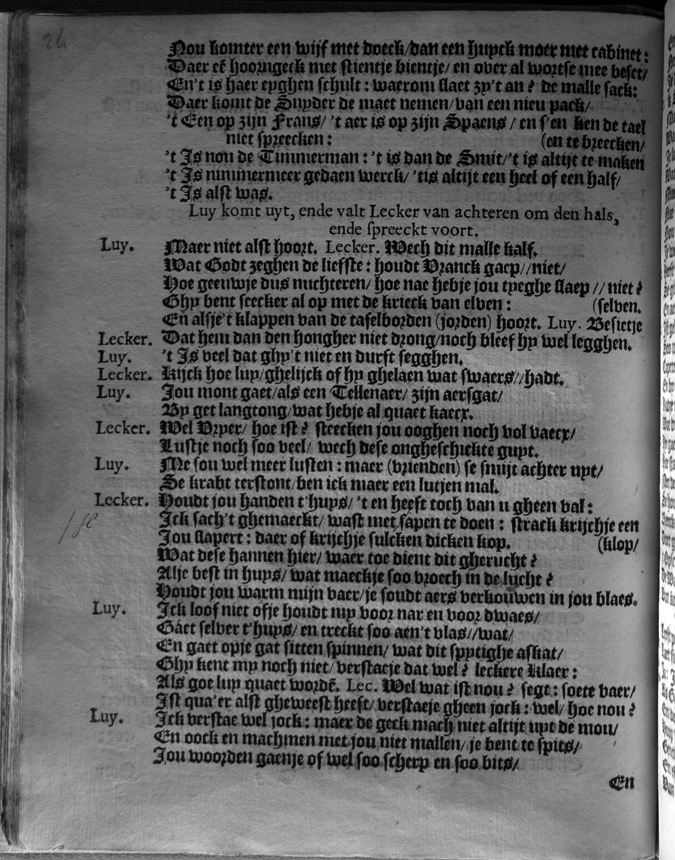 26
Nou komter een wijf met doeck/dan een huyck moer met cabinet:
Daer cē hoorngeck met stientje bientje/ en over al wortse mee beset/
En't is haer eyghen schult: waerom slaet zy't an? de malle sack:
Daer komt de Snyder de maet nemen/van een nieu pack/
't Een op zijn Frans/ 't aer is op zijn Spaens / en s'en ken de tael
niet spreecken: (en te breecken/
't Is nou de Timmerman: 't is dan de Smit/'t is altijt te maken
't Is nimmermeer gedaen werck/ 'tis altijt een heel of een half/
't Is alst was.
Luy komt uyt, ende valt Lecker van achteren om den hals,
ende spreeckt voort.
Luy. Maer niet alst hoort. Lecker. Wech dit malle kalf.
Wat Godt zeghen de liefste: houdt Vranck gaep//niet/
Hoe geeuwje dus nuchteren/ hoe nae hebje jou tyeghe slaep // niet?
Ghy bent seecker al op met de krieck van elven: (selven.
En alsje't klappen van de tafelborden (jorden) hoort. Luy. Besietje
Lecker. Dat hem dan den hongher niet drong/noch bleef hy wel legghen.
Luy. 't Is veel dat ghy't niet en durft segghen.
Lecker. Kijck hoe luy/ghelijck of hy ghelaen wat swaers//hadt.
Luy. Jou mont gaet/als een Tellenaer/ zijn aersgat/
By get langtong/wat hebje al quaet kaecx.
Lecker. Wel Vryer/ hoe ist? steecken jou ooghen noch vol vaecx/
Lustje noch soo veel/ wech dese ongheschickte guyt.
Luy. Me sou wel meer lusten: maer (vrienden) se smijt achter uyt/
Se krabt terstont/ben ick maer een lutjen mal.
Lecker. Houdt jou handen t'huys/ 't en heeft toch van u gheen val:
Ick sach't ghemaeckt/ wast met sapen te doen: strack krijchje een
Jou slapert: daer of krijchje sulcken dicken kop. (klop/
Wat dese hannen hier/ waer toe dient dit gherucht?
Alje best in huys/ wat maeckje soo vroech in de lucht?
Houdt jou warm mijn vaer/je soudt aers verkouwen in jou blaes.
Luy. Ick loof niet ofje houdt my voor nar en voor dwaes/
Gaet selver t'huys/ en treckt soo aen't vlas//wat/
En gaet opje gat sitten spinnen/ wat dit spytighe askat/
Ghy kent my noch niet/ verstaeje dat wel? leckere Klaer:
Als goe luy quaet wordē. Lec. Wel wat ist nou? segt: soete vaer/
Ist qua'er alst gheweest heeft/ verstaeje gheen jock: wel/ hoe nou?
Luy. Ick verstae wel jock: maer de geck mach niet altijt uyt de mou/
En oock en machmen met jou niet mallen/ je bent te spits/
Jou woorden gaenje of wel soo scherp en soo bits/
En